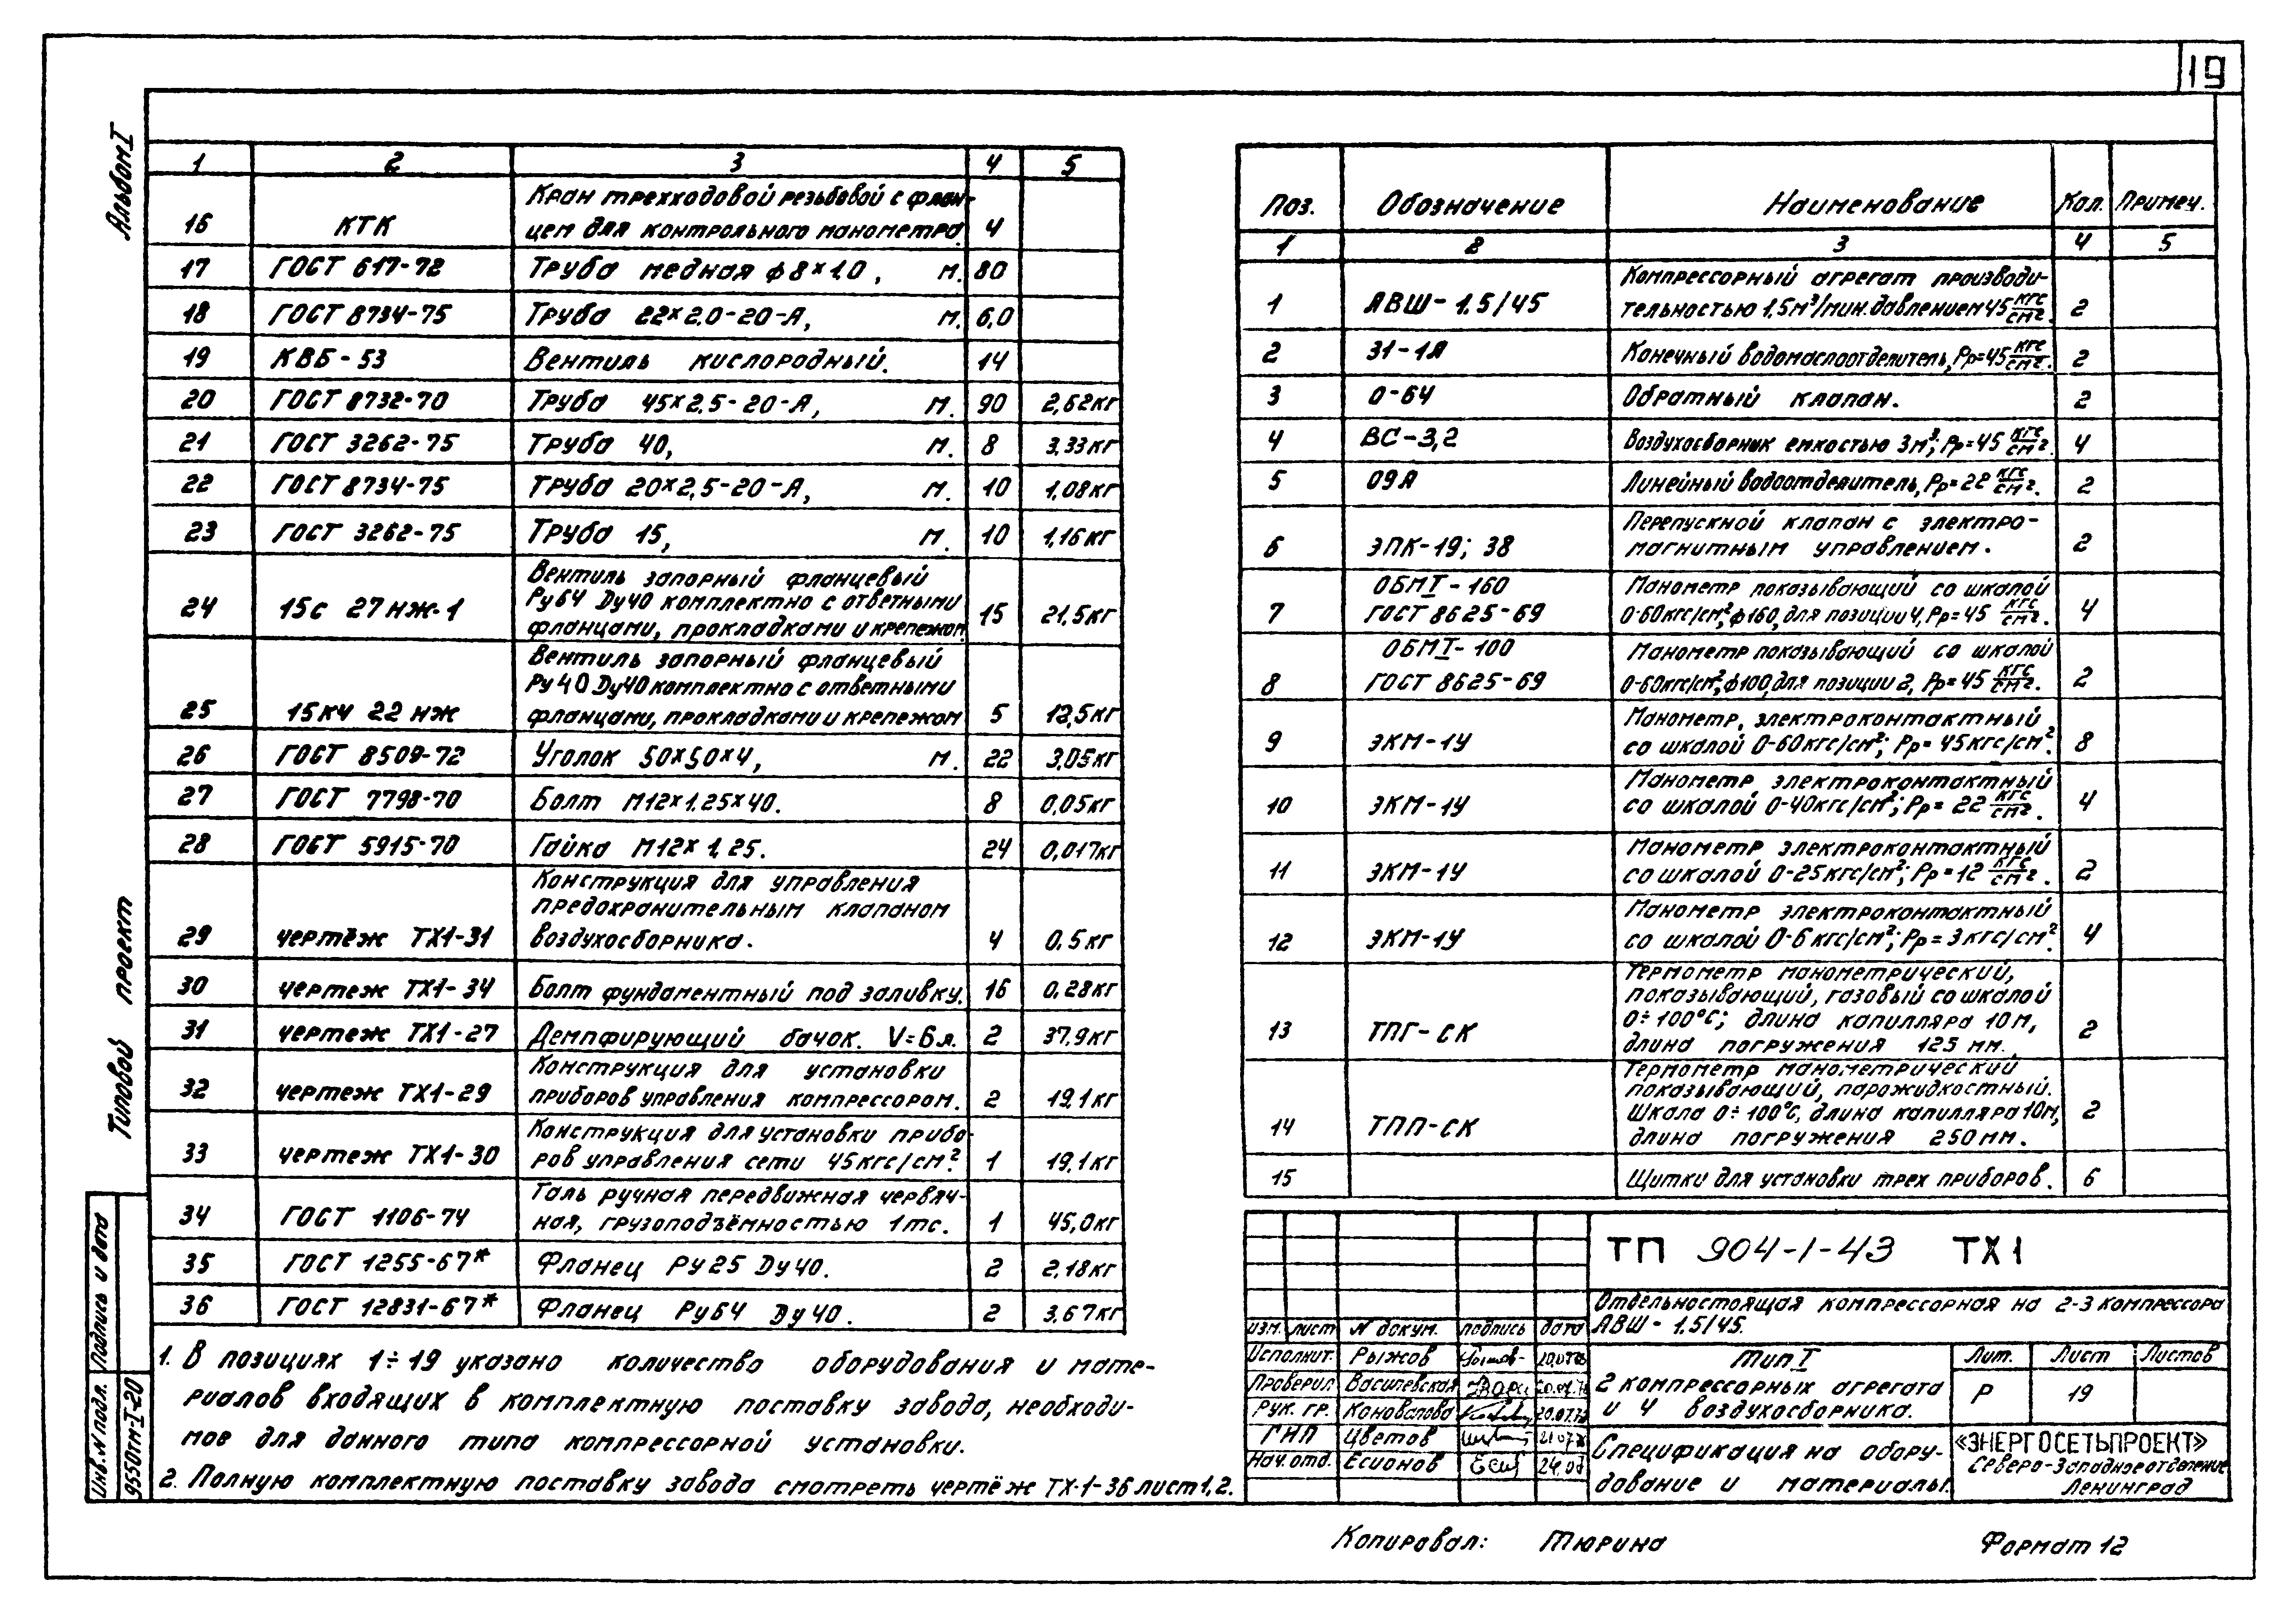 19
Альбом I
Типовой проект
1 2 3 4 5
Кран трехходовой резьбовой с флан-
16 КТК цем для контрольного манометра. 4
17 ГОСТ 617-72 Труба медная ф8×1.0, м. 80
18 ГОСТ 8734-75 Труба 22×2.0-20-А, м. 6,0
19 КВБ-53 Вентиль кислородный. 14
20 ГОСТ 8732-70 Труба 45×2.5-20-А, м. 90 2,62кг
21 ГОСТ 3262-75 Труба 40, м. 8 3,33кг
22 ГОСТ 8734-75 Труба 20×2,5-20-А, м. 10 1,08кг
23 ГОСТ 3262-75 Труба 15, м. 10 1,16кг
Вентиль запорный фланцевый
Ру64 Ду40 комплектно с ответными
24 15с 27нж.1 фланцами, прокладками и крепежом 15 21,5кг
Вентиль запорный фланцевый
Ру40 Ду40 комплектно с ответными
25 15кч 22 нж фланцами, прокладками и крепежом 5 12,5кг
26 ГОСТ 8509-72 Уголок 50×50×4, м. 22 3,05кг
27 ГОСТ 7798-70 Болт М12×1.25×40. 8 0,05кг
28 ГОСТ 5915-70 Гайка М12×1,25. 24 0,017кг
Конструкция для управления
предохранительным клапаном
29 чертёж ТХ1-31 воздухосборника. 4 0,5кг
30 чертеж ТХ1-34 Болт фундаментный под заливку. 16 0,28кг
31 чертеж ТХ1-27 Демпфирующий бачок. V=6л. 2 37,9кг
Конструкция для установки
32 чертеж ТХ1-29 приборов управления компрессором. 2 19,1кг
Конструкция для установки прибо-
33 чертеж ТХ1-30 ров управления сети 45кгс/см². 1 19,1кг
Таль ручная передвижная червяч-
34 ГОСТ 1106-74 ная, грузоподъёмностью 1тс. 1 45,0кг
35 ГОСТ 1255-67* Фланец Ру25 Ду40. 2 2,18кг
36 ГОСТ 12831-67* Фланец Ру64 Ду40. 2 3,67кг
1. В позициях 1÷19 указано количество оборудования и мате-
риалов входящих в комплектную поставку завода, необходи-
мое для данного типа компрессорной установки.
2. Полную комплектную поставку завода смотреть чертёж ТХ-1-36 лист 1,2.
Поз. Обозначение Наименование Кол. Примеч.
1 2 3 4 5
Компрессорный агрегат производи-
1 АВШ-1,5/45 тельностью 1,5м³/мин. давлением 45 кгс/см². 2
2 31-1А Конечный водомаслоотделитель, Рр=45 кгс/см². 2
3 0-64 Обратный клапан. 2
4 ВС-3,2 Воздухосборник емкостью 3м³; Рр=45 кгс/см². 4
5 09А Линейный водоотделитель, Рр=22 кгс/см². 2
Перепускной клапан с электро-
6 ЭПК-19; 38 магнитным управлением. 2
ОБМI-160 Манометр показывающий со шкалой
7 ГОСТ 8625-69 0-60кгс/см², ф160, для позиции 4, Рр=45 кгс/см². 4
ОБМI-100 Манометр показывающий со шкалой
8 ГОСТ 8625-69 0-60кгс/см², ф100, для позиции 2, Рр=45 кгс/см². 2
Манометр, электроконтактный
9 ЭКМ-1У со шкалой 0-60кгс/см²; Рр=45кгс/см². 8
Манометр электроконтактный
10 ЭКМ-1У со шкалой 0-40кгс/см²; Рр=22 кгс/см². 4
Манометр электроконтактный
11 ЭКМ-1У со шкалой 0-25кгс/см²; Рр=12 кгс/см². 2
Манометр электроконтактный
12 ЭКМ-1У со шкалой 0-6кгс/см²; Рр=3кгс/см². 4
Термометр манометрический,
показывающий, газовый со шкалой
13 ТПГ-СК 0÷100°С; длина капилляра 10м, 2
длина погружения 125 мм.
Термометр манометрический
показывающий, парожидкостный.
Шкала 0÷100°С, длина капилляра 10м, 2
14 ТПП-СК длина погружения 250мм.
15 Щитки для установки трех приборов. 6
ТП 904-1-43 ТХ1
Отдельностоящая компрессорная на 2-3 компрессора
АВШ-1,5/45.
изм. лист N докум. подпись дата
Исполнит. Рыжов
Проверил Василевская
Рук. гр. Коновалова
ГИП Цветов
Нач. отд. Есионов
Тип I
2 компрессорных агрегата
и 4 воздухосборника.
Лит. Лист Листов
Р 19
Спецификация на обору-
дование и материалы.
«ЭНЕРГОСЕТЬПРОЕКТ»
Северо-Западное отделение
Ленинград
Подпись и дата
Инв. N подл.
9650тм-I-20
Копировал: Тюрина Формат 12